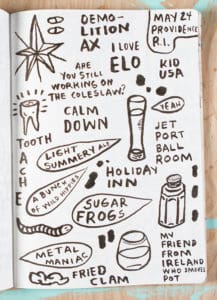 DEMO-
LITION
AX
MAY 24
PROVIDENCE
R.I.
I LOVE
ELO
KID
USA
ARE YOU
STILL WORKING
ON THE
COLESLAW?
CALM
DOWN
YEAH
TOOTH
ACHE
LIGHT
SUMMERY ALE
JET
PORT
BALL
ROOM
HOLIDAY
INN
A BUNCH
OF WILD HIPPIES
SUGAR
FROGS
METAL
MANIAC
FRIED
CLAM
MY
FRIEND
FROM
IRELAND
WHO SMOKES
POT